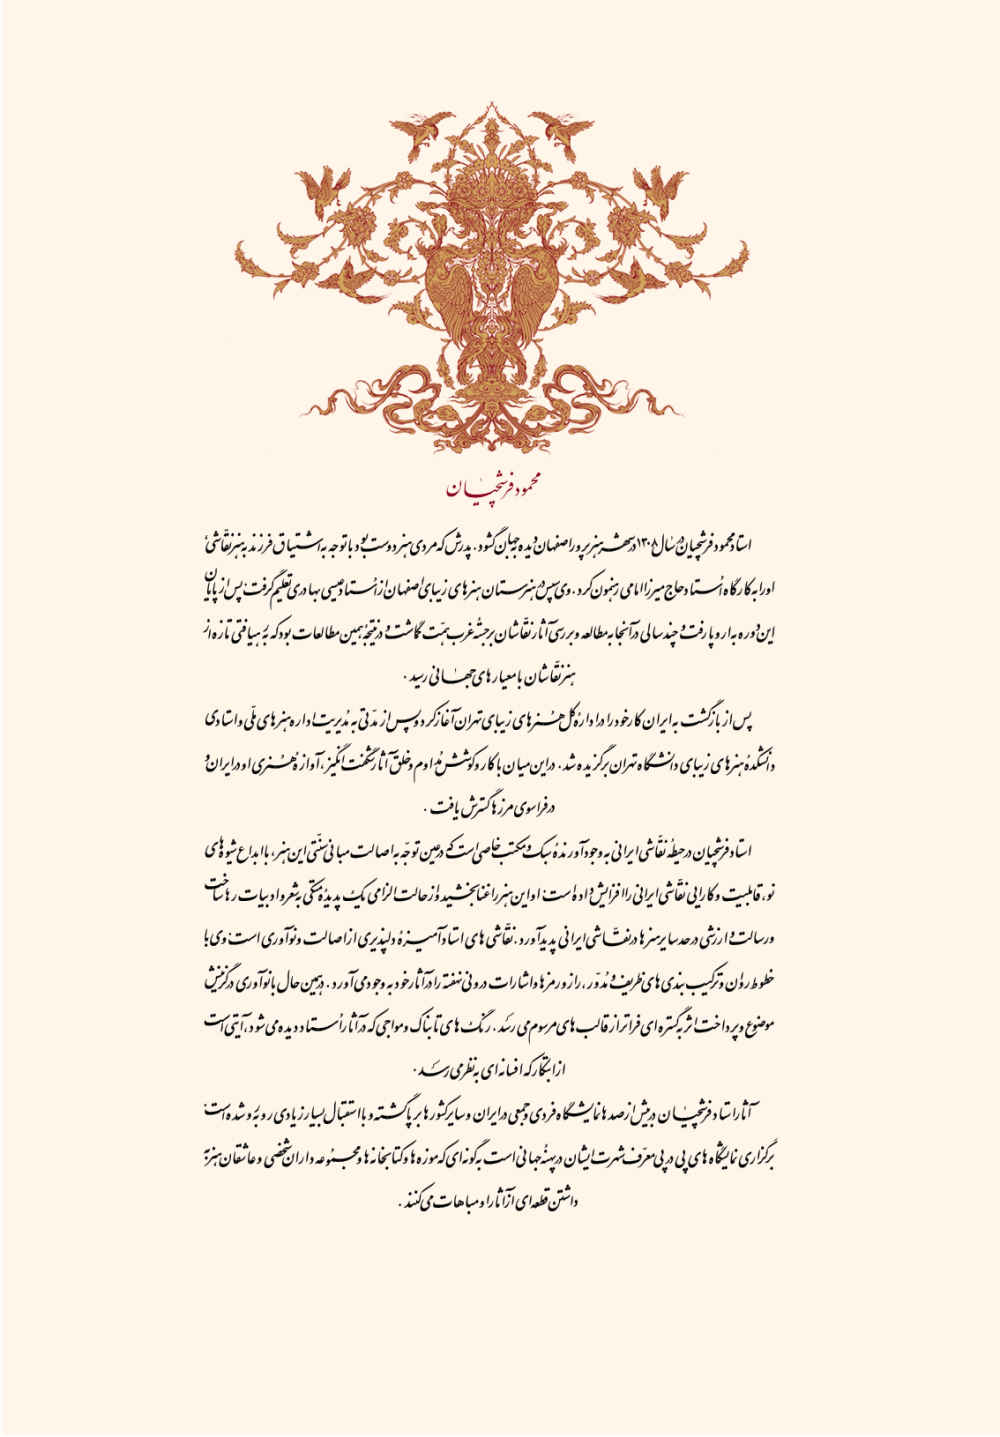 محمود فرشچیان
استاد محمود فرشچیان در سال ۱۳۰۸ در شهر هنرپرور اصفهان دیده به جهان گشود. پدرش که مردی هنردوست بود با توجه به اشتیاق فرزند به هنر نقّاشی
او را به کارگاه اُستاد حاج میرزا امامی رهنمون کرد. وی سپس در هنرستان هنرهای زیبای اصفهان از اُستاد عیسی بهادری تعلیم گرفت. پس از پایان
این دوره به اروپا رفت و چند سالی در آنجا به مطالعه و بررسی آثار نقّاشان برجستهٔ غرب همّت گماشت و در نتیجهٔ همین مطالعات بود که به رهیافتی تازه از
هنر نقّاشان با معیارهای جهانی رسید.
پس از بازگشت به ایران کار خود را در ادارهٔ کل هنرهای زیبای تهران آغاز کرد و پس از مدّتی به مُدیریت اداره هنرهای ملّی و استادی
دانشکدهٔ هنرهای زیبای دانشگاه تهران برگزیده شد. در این میان با کار و کوشش مُداوم و خلق آثار شگفت انگیز، آوازهٔ هنری او در ایران و
در فراسوی مرزها گسترش یافت.
استاد فرشچیان در حیطهٔ نقّاشی ایرانی به وجود آورندهٔ سبک و مکتب خاصی است که در عین توجّه به اصالت مبانی سنّتی این هنر، با ابداع شیوه های
نو، قابلیت و کارایی نقّاشی ایرانی را افزایش داده است. او این هنر را غنا بخشید و از حالت الزامی یک پدیدهٔ متکی به شعر و ادبیات رها ساخت
و رسالت و ارزشی در حد سایر هنرها در نقّاشی ایرانی پدید آورد. نقّاشی های استاد آمیزهٔ دلپذیری از اصالت و نوآوری است. وی با
خطوط روان و ترکیب بندی های ظریف و مُدوّر، راز و رمزها و اشارات درونی نهفته را در آثار خود به وجود می آورد. در همین حال با نوآوری در گزینش
موضوع و پرداخت اثر به گستره ای فراتر از قالب های مرسوم می رسد. رنگ های تابناک و مواجی که در آثار اُستاد دیده می شود، آیتی است
از ابتکار که افسانه ای به نظر می رسد.
آثار استاد فرشچیان در بیش از صدها نمایشگاه فردی و جمعی در ایران و سایر کشورها برپا گشته و با استقبال بسیار زیادی روبرو شده است.
برگزاری نمایشگاه های پی در پی معرّف شهرت ایشان در پهنهٔ جهانی است به گونه ای که موزه ها و کتابخانه ها و مجموعه داران شخصی و عاشقان هنر به
داشتن قطعه ای از آثار او مباهات می کنند.